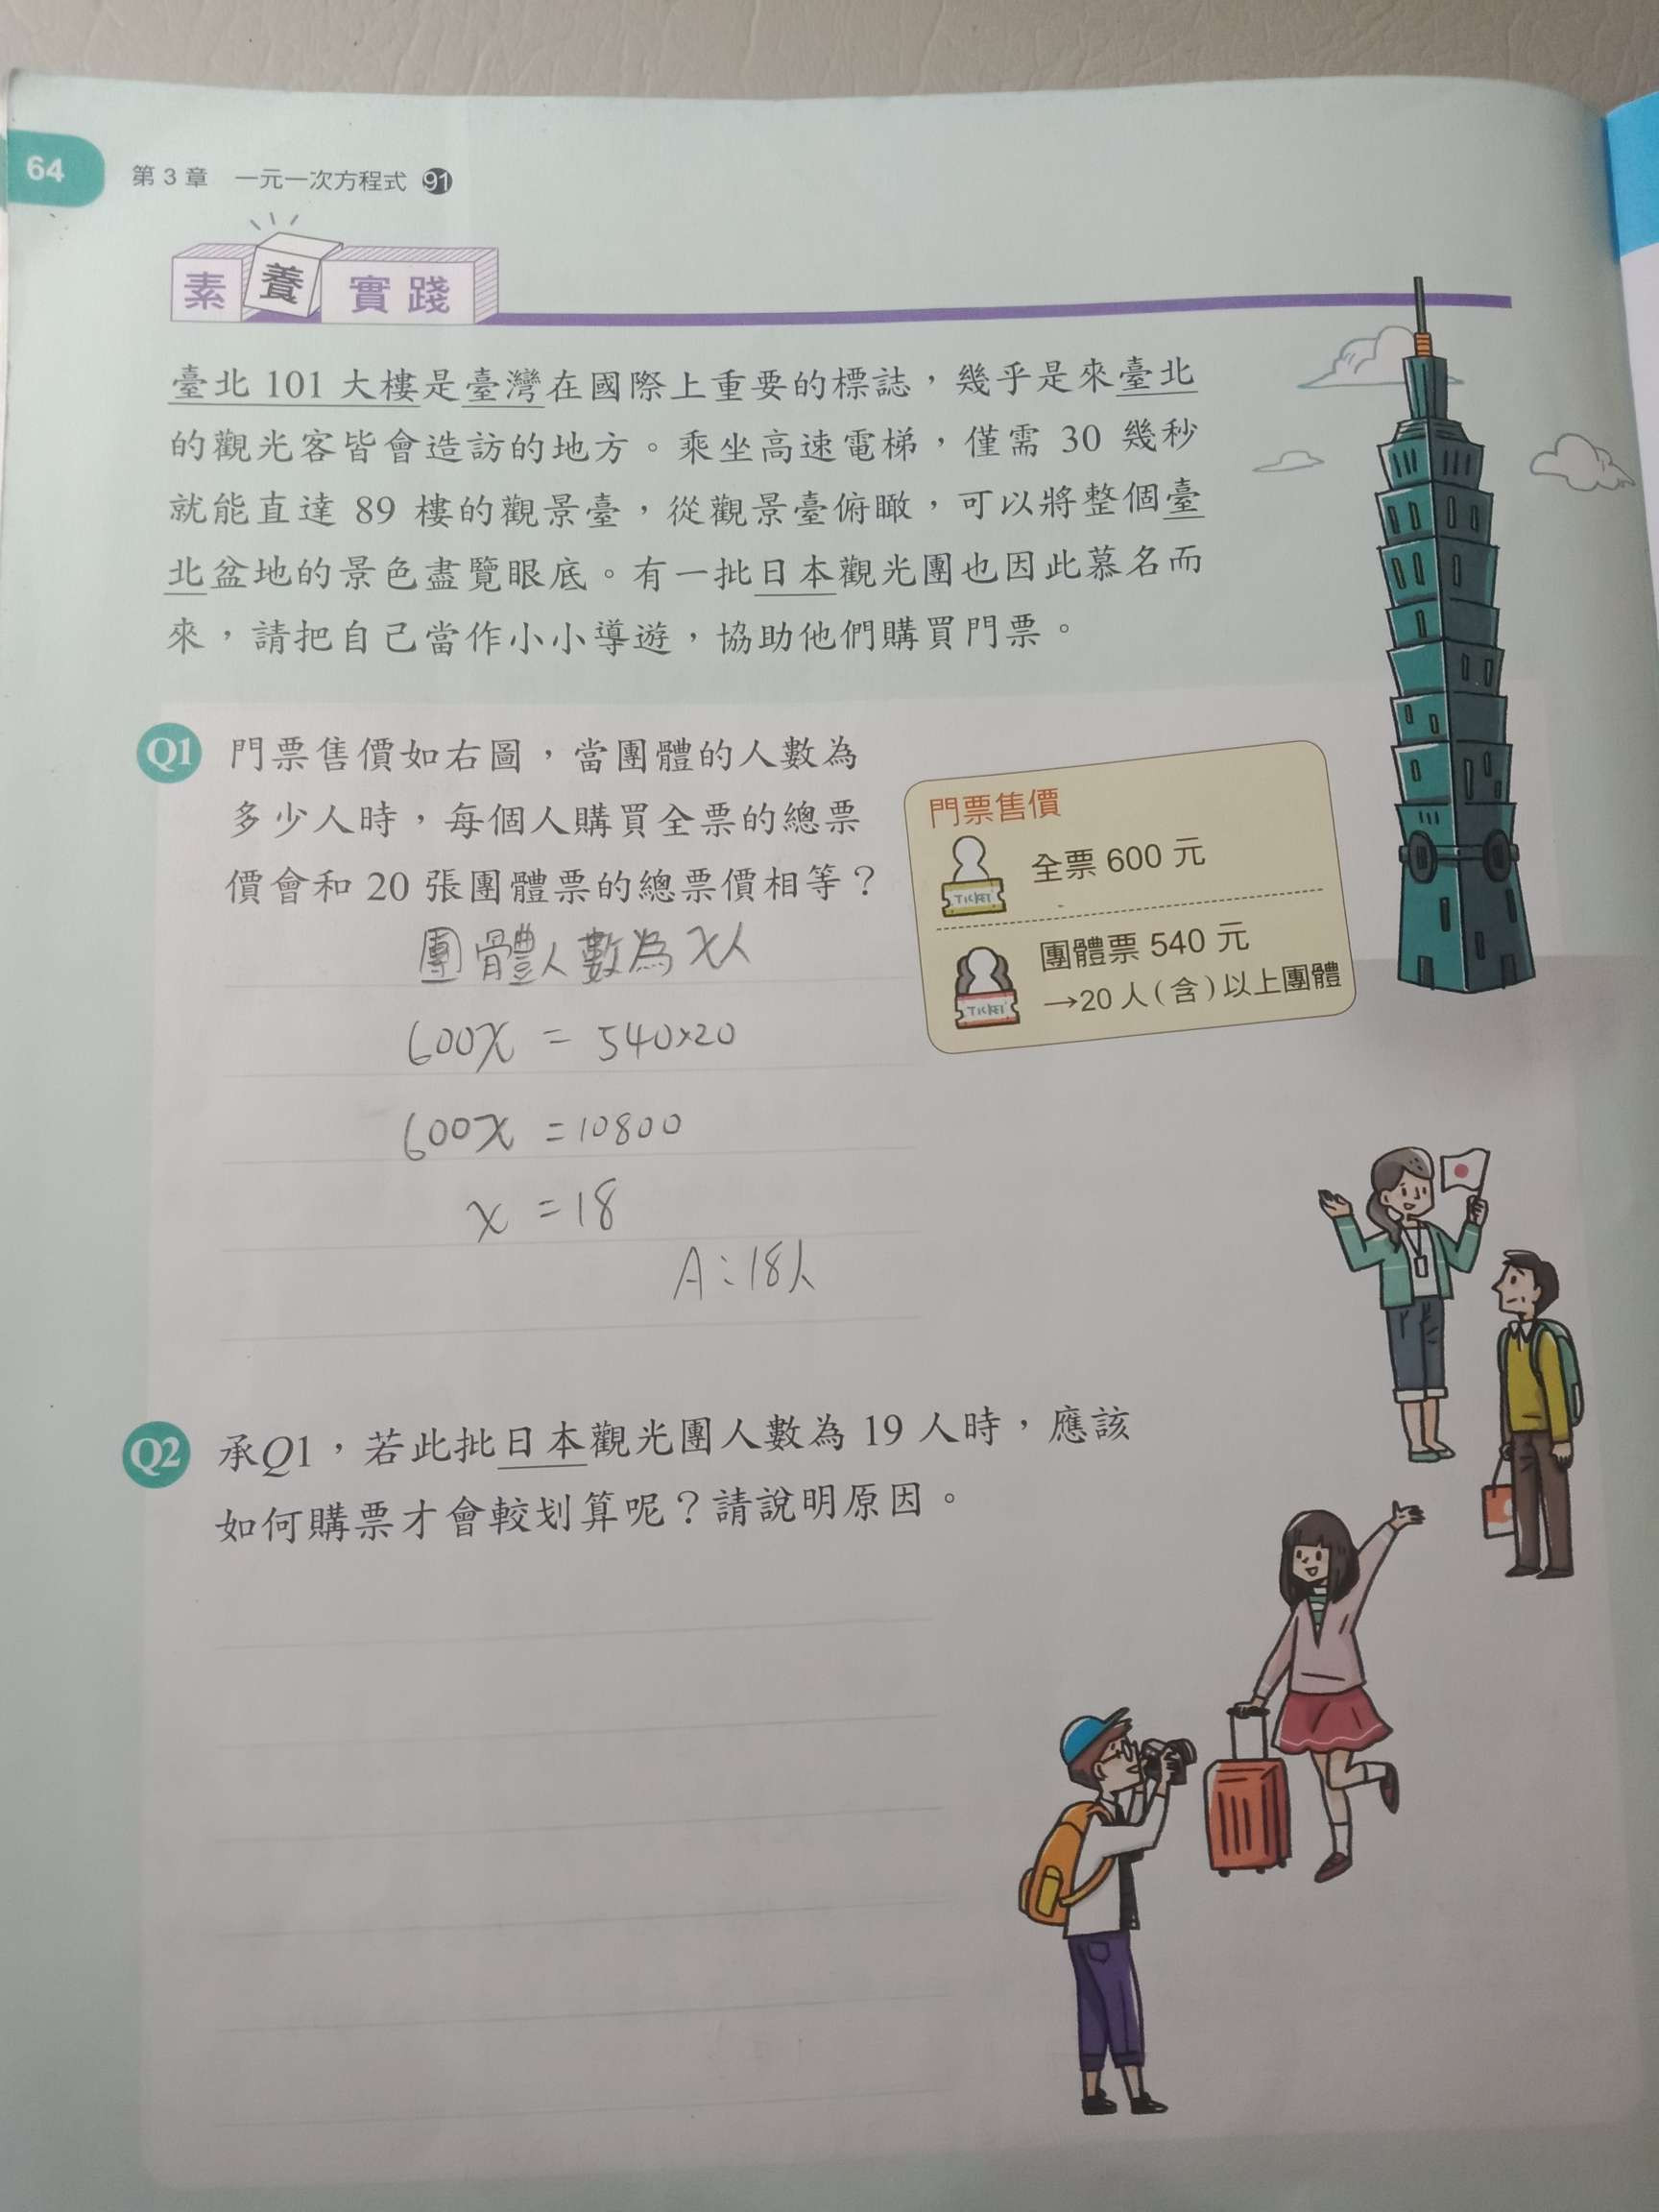 64
第3章 一元一次方程式 91
素養實踐
臺北 101 大樓是臺灣在國際上重要的標誌，幾乎是來臺北
的觀光客皆會造訪的地方。乘坐高速電梯，僅需 30 幾秒
就能直達 89 樓的觀景臺，從觀景臺俯瞰，可以將整個臺
北盆地的景色盡覽眼底。有一批日本觀光團也因此慕名而
來，請把自己當作小小導遊，協助他們購買門票。
Q1 門票售價如右圖，當團體的人數為
多少人時，每個人購買全票的總票
價會和 20 張團體票的總票價相等？
門票售價
TICKET
全票 600 元
TICKET
團體票 540 元
→20 人（含）以上團體
團體人數為x人
600x = 540×20
600x = 10800
x = 18
A：18人
Q2 承Q1，若此批日本觀光團人數為 19 人時，應該
如何購票才會較划算呢？請說明原因。